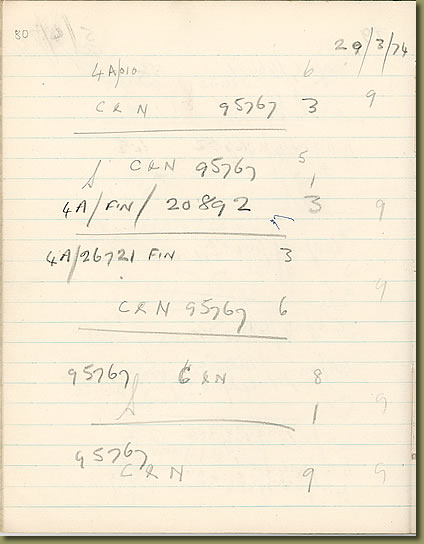 80
29/3/74
4A/010 6
C&N 95767 3 9
S C&N 95767 5
1
4A/FIN/ 20892 3 9
4A/26721 FIN 3
9
C&N 95767 6
95767 C&N 8
S 1 9
95767
C&N 9 9